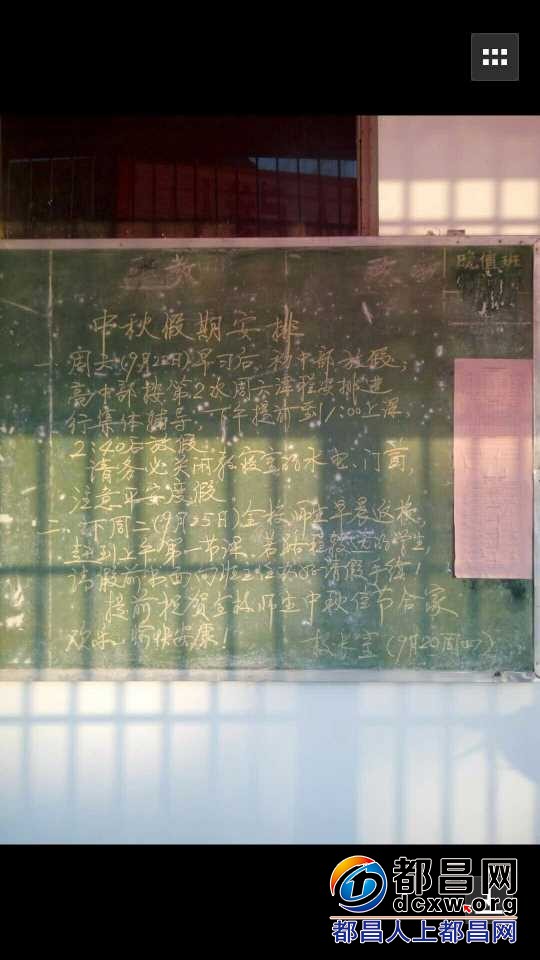 晚值班
中秋假期安排
一、周六(9月22日)早习后 初中部放假,
高中部按第2次周六课程安排进
行集体辅导,下午提前到1:00上课,
2:40后放假.
请务必关闭教寝室的水电、门窗,
注意平安度假
二、下周二(9月25日)全校师生早晨返校,
赶到上午第一节课.若路程较远的学生,
请假前书面向班主任办好请假手续!
提前祝贺全校师生中秋佳节合家
欢乐、愉快安康!
校长室(9月20周四)
都昌网
dcxw.org
都昌人上都昌网